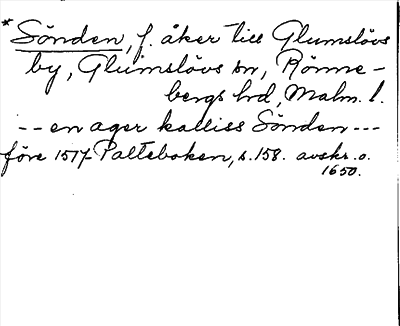 * Sönden, f. åker till Glumslövs
by, Glumslövs sn, Rönne-
bergs hd, Malm. l.
-- en ager kalliss Sönden ---
före 1517 Palteboken, s. 158. avskr. o.
1650.